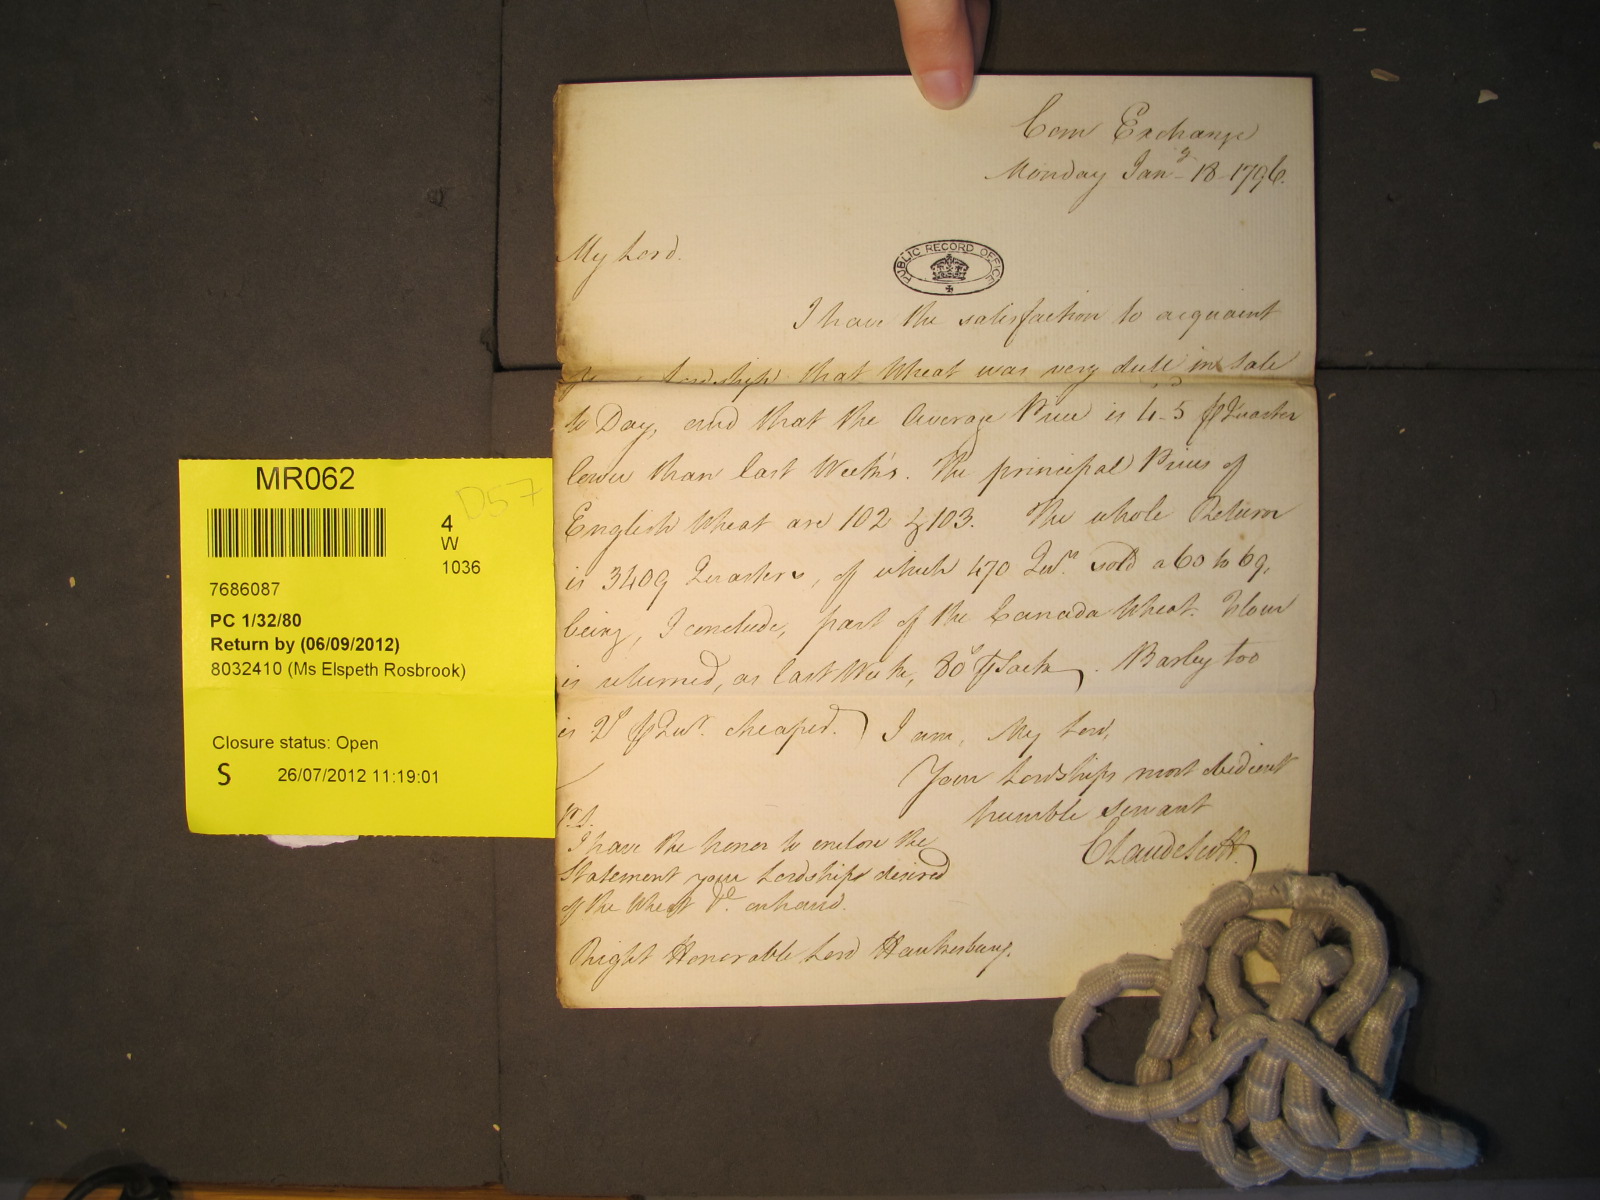 Corn Exchange
Monday Jany 18 1796.
My Lord.
PUBLIC RECORD OFFICE
I have the satisfaction to acquaint
Lordship that Wheat was very dull in Sale
to Day, and that the Average Price is 4-5 ⅌ Quarter
lower than last Week's. The principal Prices of
English Wheat are 102 & 103. The whole Return
is 3409 Quarters, of which 470 Qurs sold a 60 to 69,
being, I conclude, part of the Canada Wheat. Flour
is returned, as last Week, 80s ⅌ Sack. Barley too
is 2s ⅌ Qur. cheaper. I am, My Lord,
Your Lordships most obedient
humble servant
Claude Scott.
P.S.
I have the honor to enclose the
Statement your Lordship desired
of the Wheat &c. on hand.
Right Honorable Lord Hawkesbury.
MR062
D57
4
W
1036
7686087
PC 1/32/80
Return by (06/09/2012)
8032410 (Ms Elspeth Rosbrook)
Closure status: Open
S 26/07/2012 11:19:01